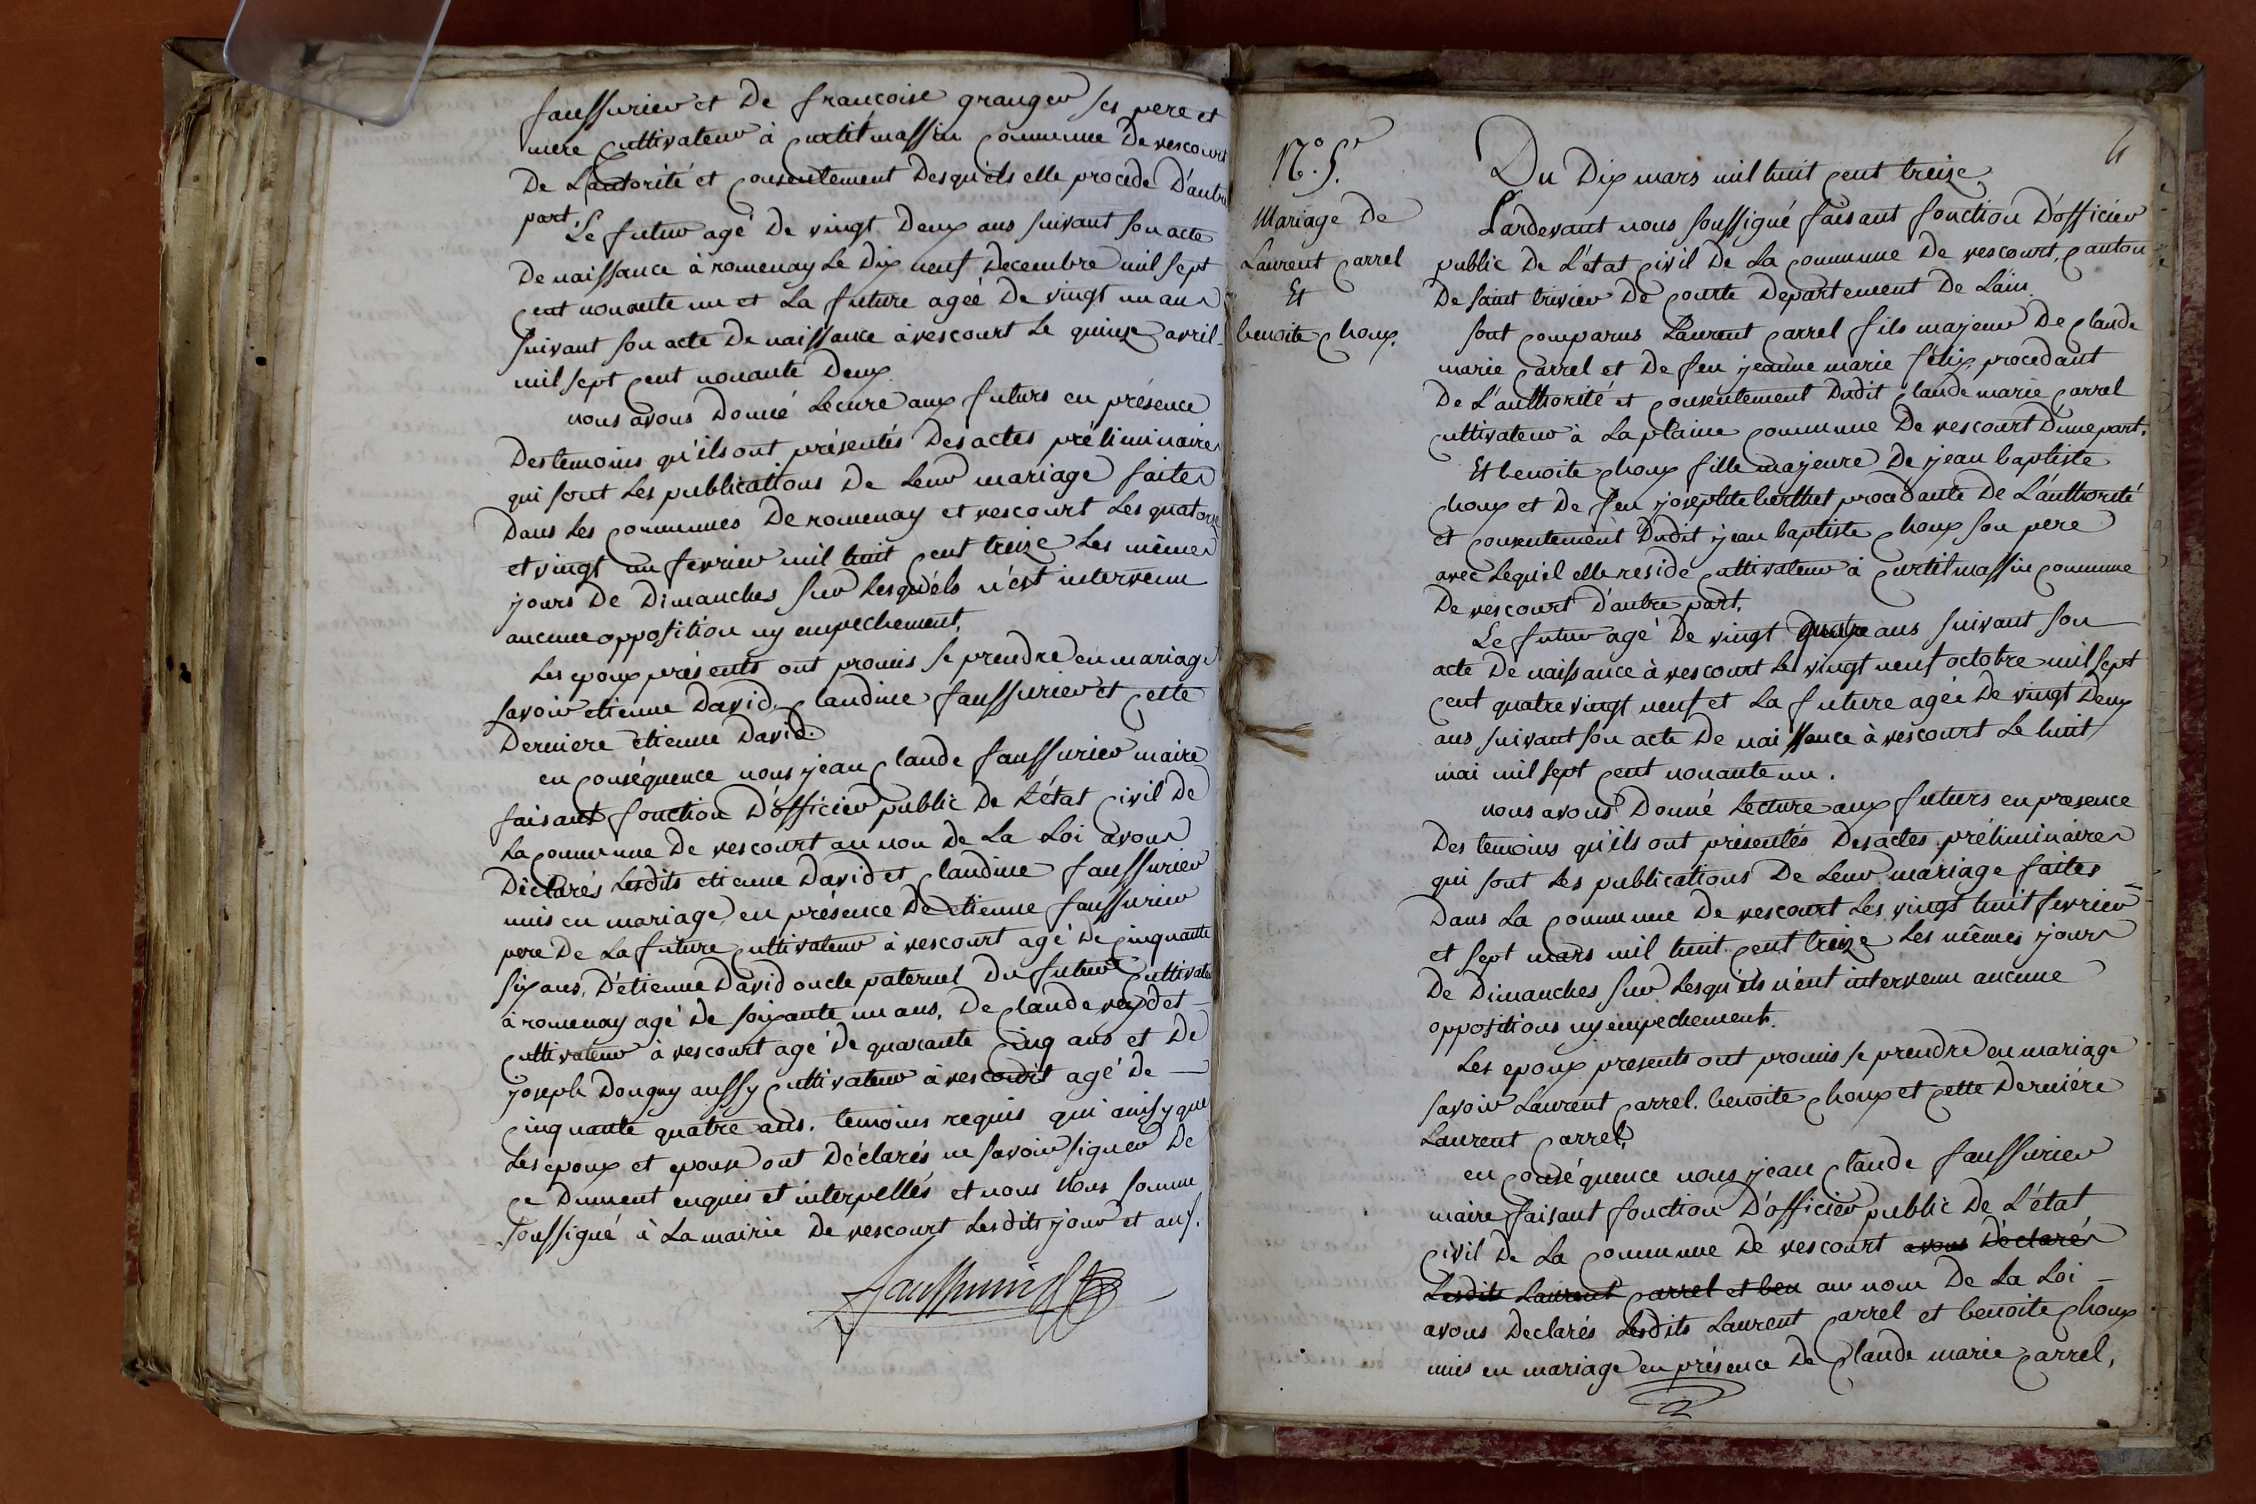 faussurier et De françoise granger ses pere et
mere cultivateur à curtil massin commune De vescourt
De Lautorité et consentement Desquels elle procede D'autre
part. Le futur agé De vingt Deux ans suivant son acte
De naissance à romenay Le Dix neuf Decembre mil sept
cent nonante un et La future agée De vingt un ans
suivant son acte De naissance à vescourt Le quinze avril
mil sept cent nonante Deux
nous avons Donné Lecture aux futurs en présence
Des temoins qu'ils ont présentés Des actes préliminaires
qui sont Les publications De Leur mariage faites
Dans Les communes De romenay et vescourt Les quatorze
et vingt un fevrier mil huit cent treize Les mêmes
jours De Dimanches sur Lesquels n'est intervenu
aucune opposition ny empechement.
Les epoux présents ont promis se prendre en mariage
savoir etienne David, claudine faussurier et cette
Derniere etienne David.
en conséquence nous jean claude faussurier maire
faisant fonction D'officier public De L'état civil De
La commune De vescourt au nom De La Loi avons
Déclarés Lesdits etienne David et claudine faussurier
unis en mariage en présence De etienne faussurier
pere De La future cultivateur à vescourt agé De cinquante
six ans, D'étienne David oncle paternel Du futur cultivateur
à romenay agé De soixante un ans, De claude
cultivateur à vescourt agé De quarante cinq ans et De
joseph Donguy aussy cultivateur à vescourt agé De
cinquante quatre ans. temoins requis qui ainsy que
Les epoux et epouse ont Déclarés ne savoir signer De
ce Dument enquis et interpellés et nous nous somme
soussigné à La mairie De vescourt Lesdits jour et an.
faussurier
4
N.° 5.
Mariage De
Laurent carrel
Et
benoite choux.
Du Dix mars mil huit cent treize
Pardevant nous soussigné faisant fonction D'officier
public De L'état civil De La commune De vescourt, canton
De saint trivier De courte Departement De L'ain
sont comparus Laurent carrel fils majeur De claude
marie carrel et De feu jeanne marie félix, procedant
De L'authorité et consentement Dudit claude marie carrel
cultivateur à La plaine commune De vescourt D'une part.
Et benoite choux fille majeure De jean baptiste
choux et De feu josephte berthet procedante De L'authorité
et consentement Dudit jean baptiste choux son pere
avec Lequel elle reside cultivateur à curtil massin commune
De vescourt D'autre part.
Le futur agé De vingt quatre ans suivant son
acte De naissance à vescourt Le vingt neuf octobre mil sept
cent quatre vingt neuf et La future agée De vingt Deux
ans suivant son acte De naissance à vescourt Le huit
mai mil sept cent nonante un.
nous avons Donné Lecture aux futurs en presence
Des temoins qu'ils ont présentés Des actes préliminaires
qui sont Les publications De Leur mariage faites
Dans La commune De vescourt Les vingt huit fevrier
et sept mars mil huit cent treize Les mêmes jours
De Dimanches sur Lesquels n'ent intervenu aucune
oppositions ny empechement.
Les epoux presents ont promis se prendre en mariage
savoir Laurent carrel. benoite choux et cette Derniére
Laurent carrel,
en conséquence nous jean claude faussurier
maire faisant fonction D'officier public De L'état
civil De La commune De vescourt avons Déclarés
Lesdits Laurent carrel et ben au nom De La Loi
avons Declarés Lesdits Laurent carrel et benoite choux
unis en mariage en présence De claude marie carrel,